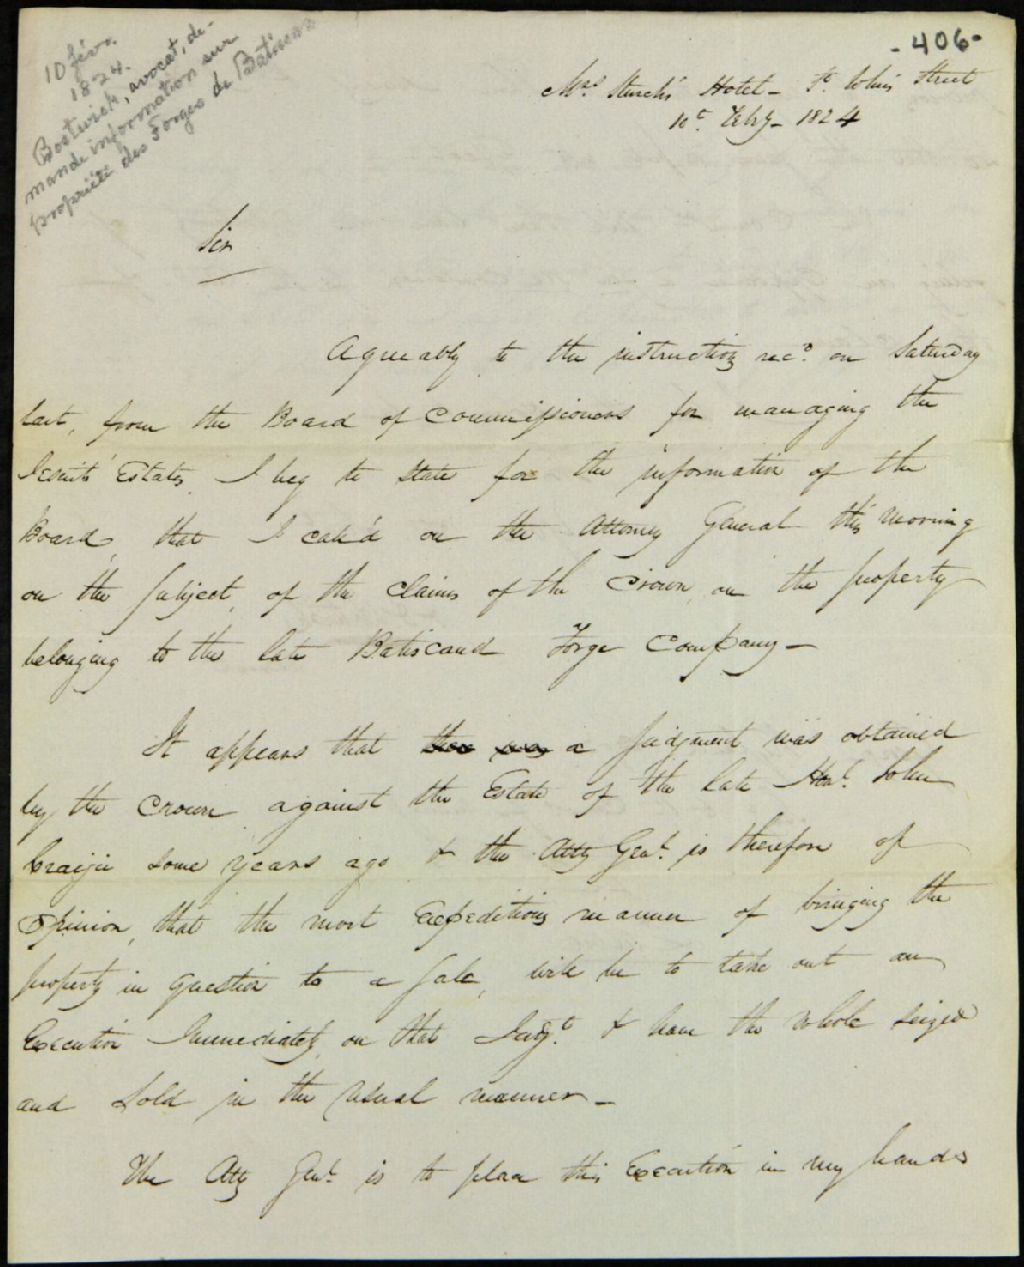 -406-
10 févr.
1824.
Bostwick, avocat, de-
mande information sur
propriété des Forges de Batiscan
Mrs. Hotel - St. Johns Street
10th. Feby - 1824
Sir
Agreeably to the instruction recd. on Saturday
last, from the Board of Commissioners for managing the
Jesuits' Estates I beg to state for the information of the
Board, that I call'd on the Attorney General this morning
on the subject, of the claims of the Crown, on the property
belonging to the late Batiscand Forge Company -
It appears that there was a judgment was obtained
by the Crown against the Estate of the late Honl. John
Craigie some years ago & the Atty Genl. is therefore of
opinion, that the most Expeditious manner of bringing the
property in question to a sale, will be to take out an
Execution Immediately on that Judgt. & have the whole seized
and sold in the usual manner -
The Atty Genl. is to place this Execution in my hands